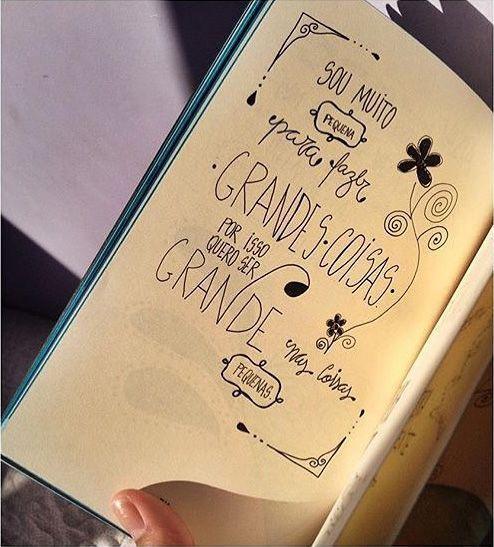 SOU MUITO
PEQUENA
para fazer
·GRANDES·COISAS·
POR ISSO
QUERO SER
GRANDE
nas coisas
PEQUENAS